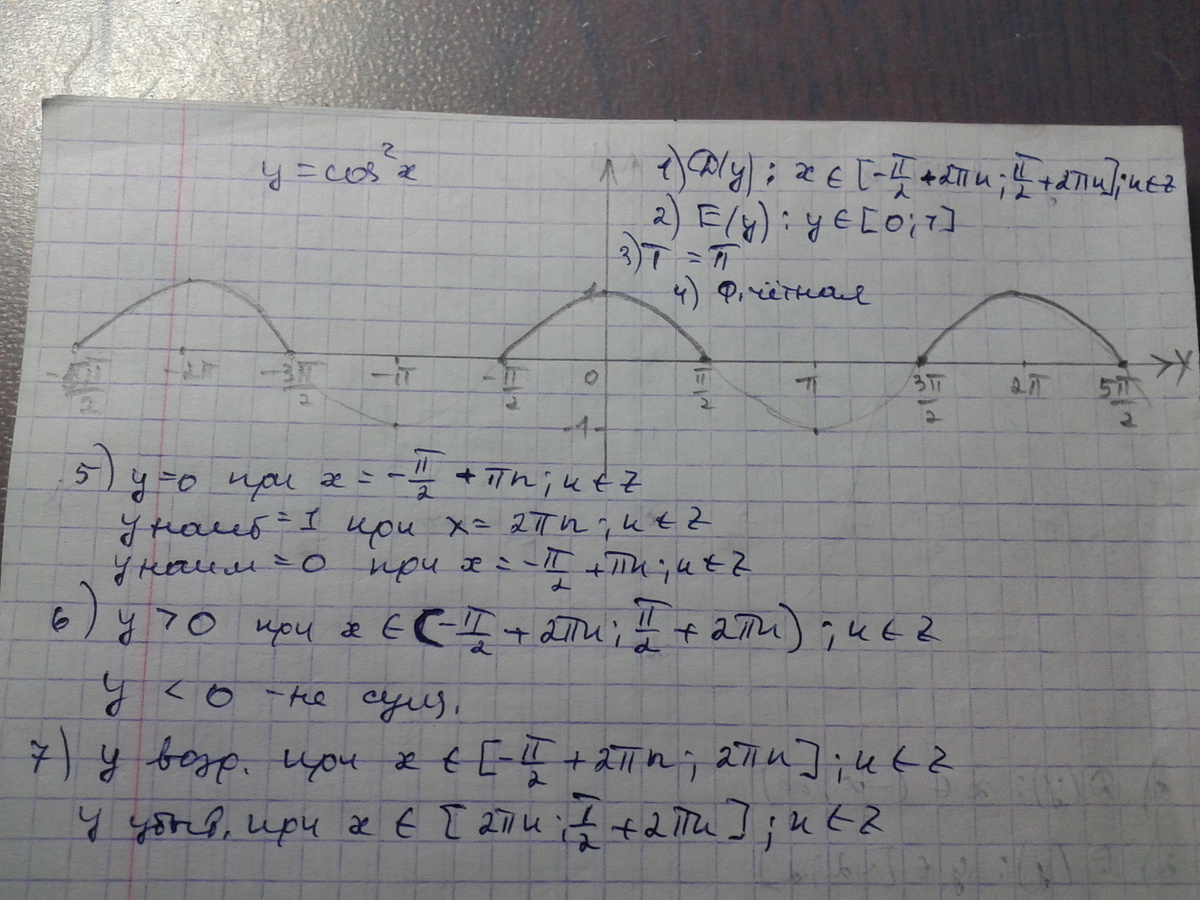 y = cos²x
1) D(y) : x ∈ [-π/2 + 2πn ; π/2 + 2πn] ; n ∈ Z
2) E(y) : y ∈ [0 ; 1]
3) T = π
4) Ф. чётная
1
-5π/2 -2π -3π/2 -π -π/2 0 π/2 π 3π/2 2π 5π/2 X
-1
5) y = 0 при x = -π/2 + πn ; n ∈ Z
y наиб = 1 при x = 2πn ; n ∈ Z
y наим = 0 при x = -π/2 + πn ; n ∈ Z
6) y > 0 при x ∈ (-π/2 + 2πn ; π/2 + 2πn) ; n ∈ Z
y < 0 - не сущ.
7) y возр. при x ∈ [-π/2 + 2πn ; 2πn] ; n ∈ Z
y убыв. при x ∈ [2πn ; π/2 + 2πn] ; n ∈ Z